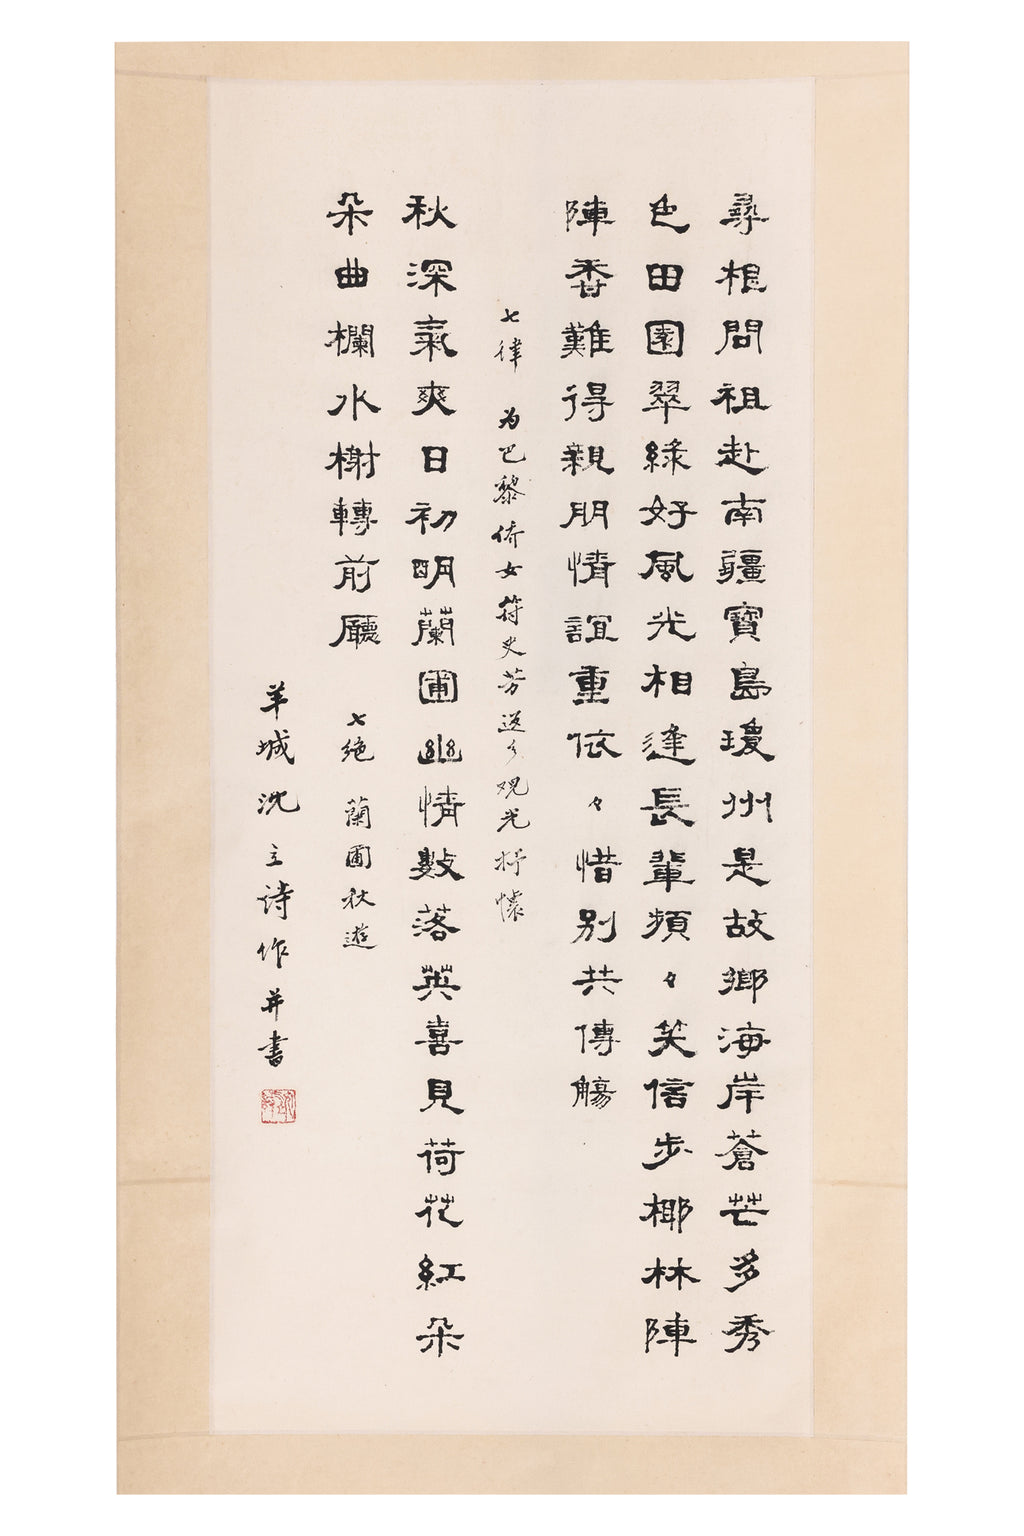 尋根問祖赴南疆寶島瓊州是故鄉海岸蒼茫多秀
色田園翠綠好風光相逢長輩頻々笑信步椰林陣
陣香難得親朋情誼重依々惜別共傳觴
七律 为巴黎侨女符史芳返乡观光抒懷
秋深氣爽日初明蘭圃幽情數落英喜見荷花紅朵
朵曲欄水榭轉前廳
七絶 蘭圃秋遊
羊城沈立诗作并書